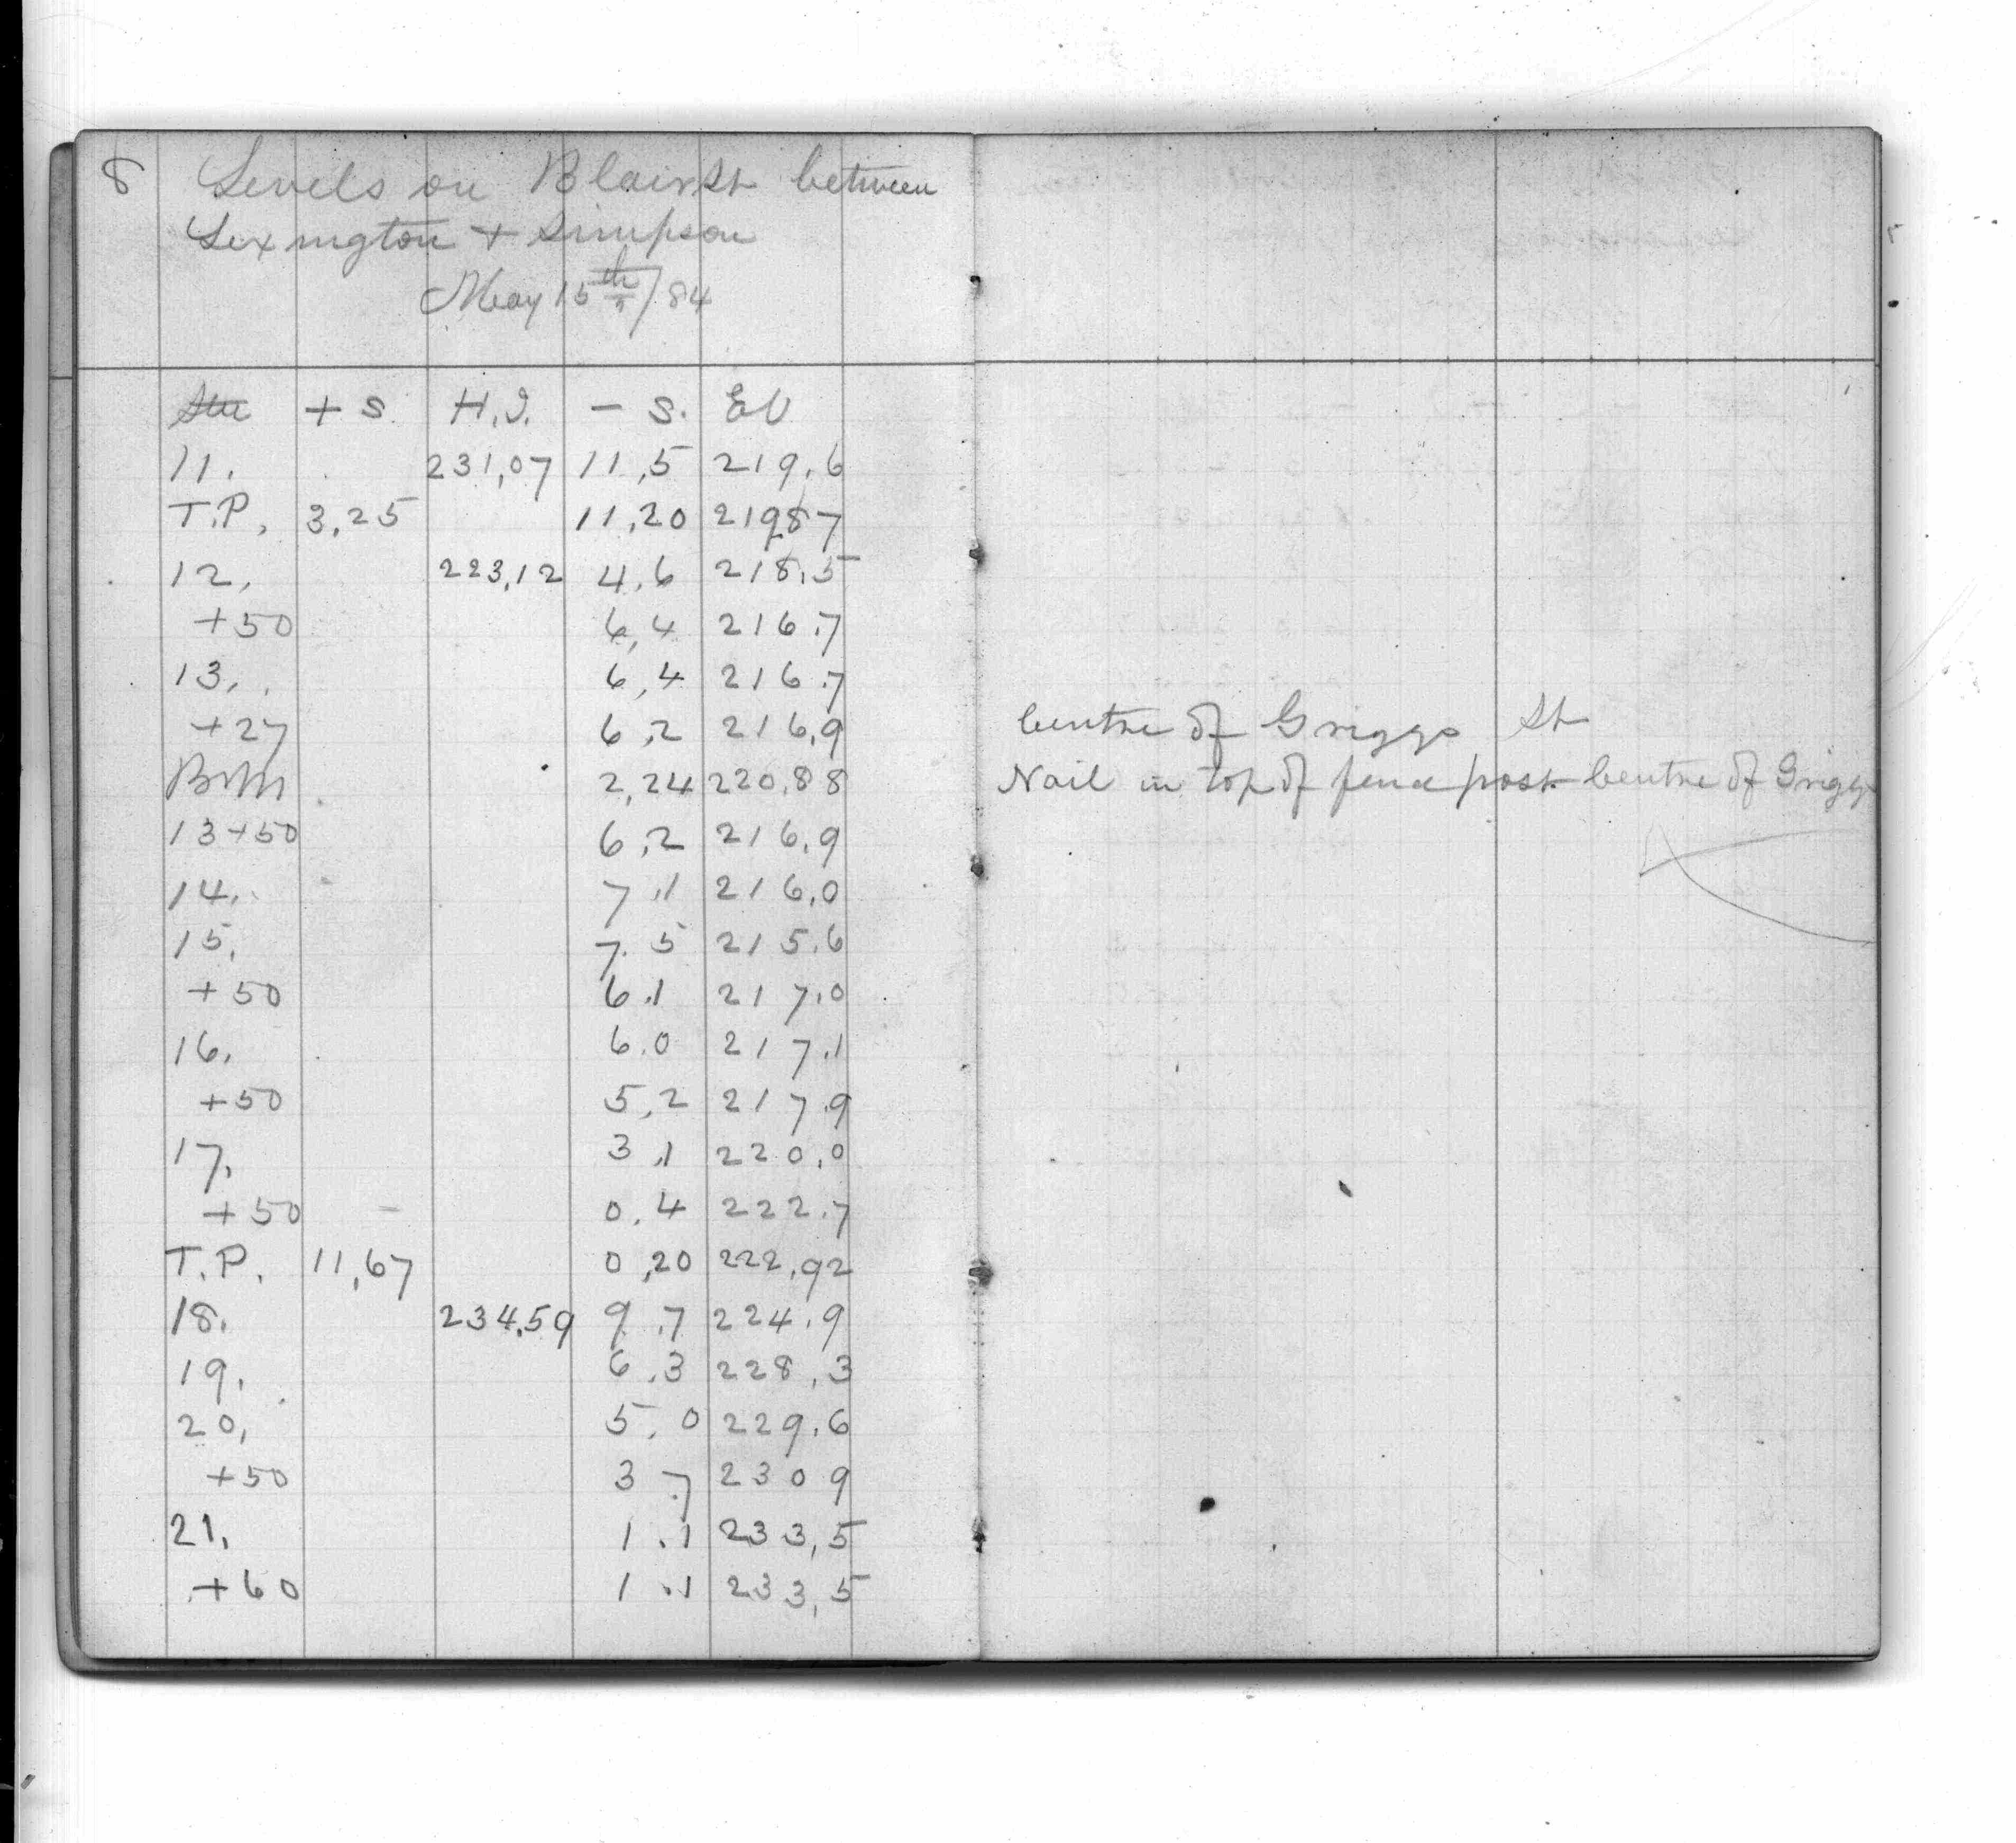 8 Levels on Blair St between
Lexington + Simpson
May 15th/84
Sta + S. H.I. - S. El
11. 231,07 11,5 219,6
T.P. 3,25 11,20 219,87
12, 223,12 4,6 218,5
+50 6,4 216.7
13, 6,4 216.7
+27 6,2 216,9 Centre of Griggs St
BM 2,24 220,88 Nail in top of fence post Centre of Griggs
13+50 6,2 216,9
14. 7,1 216,0
15. 7.5 215.6
+50 6.1 217.0
16. 6.0 217.1
+50 5,2 217.9
17. 3,1 220,0
+50 0,4 222.7
T.P. 11,67 0,20 222,92
18. 234,59 9.7 224,9
19. 6,3 228,3
20, 5,0 229,6
+50 3.7 230 9
21. 1.1 233,5
+60 1.1 233,5